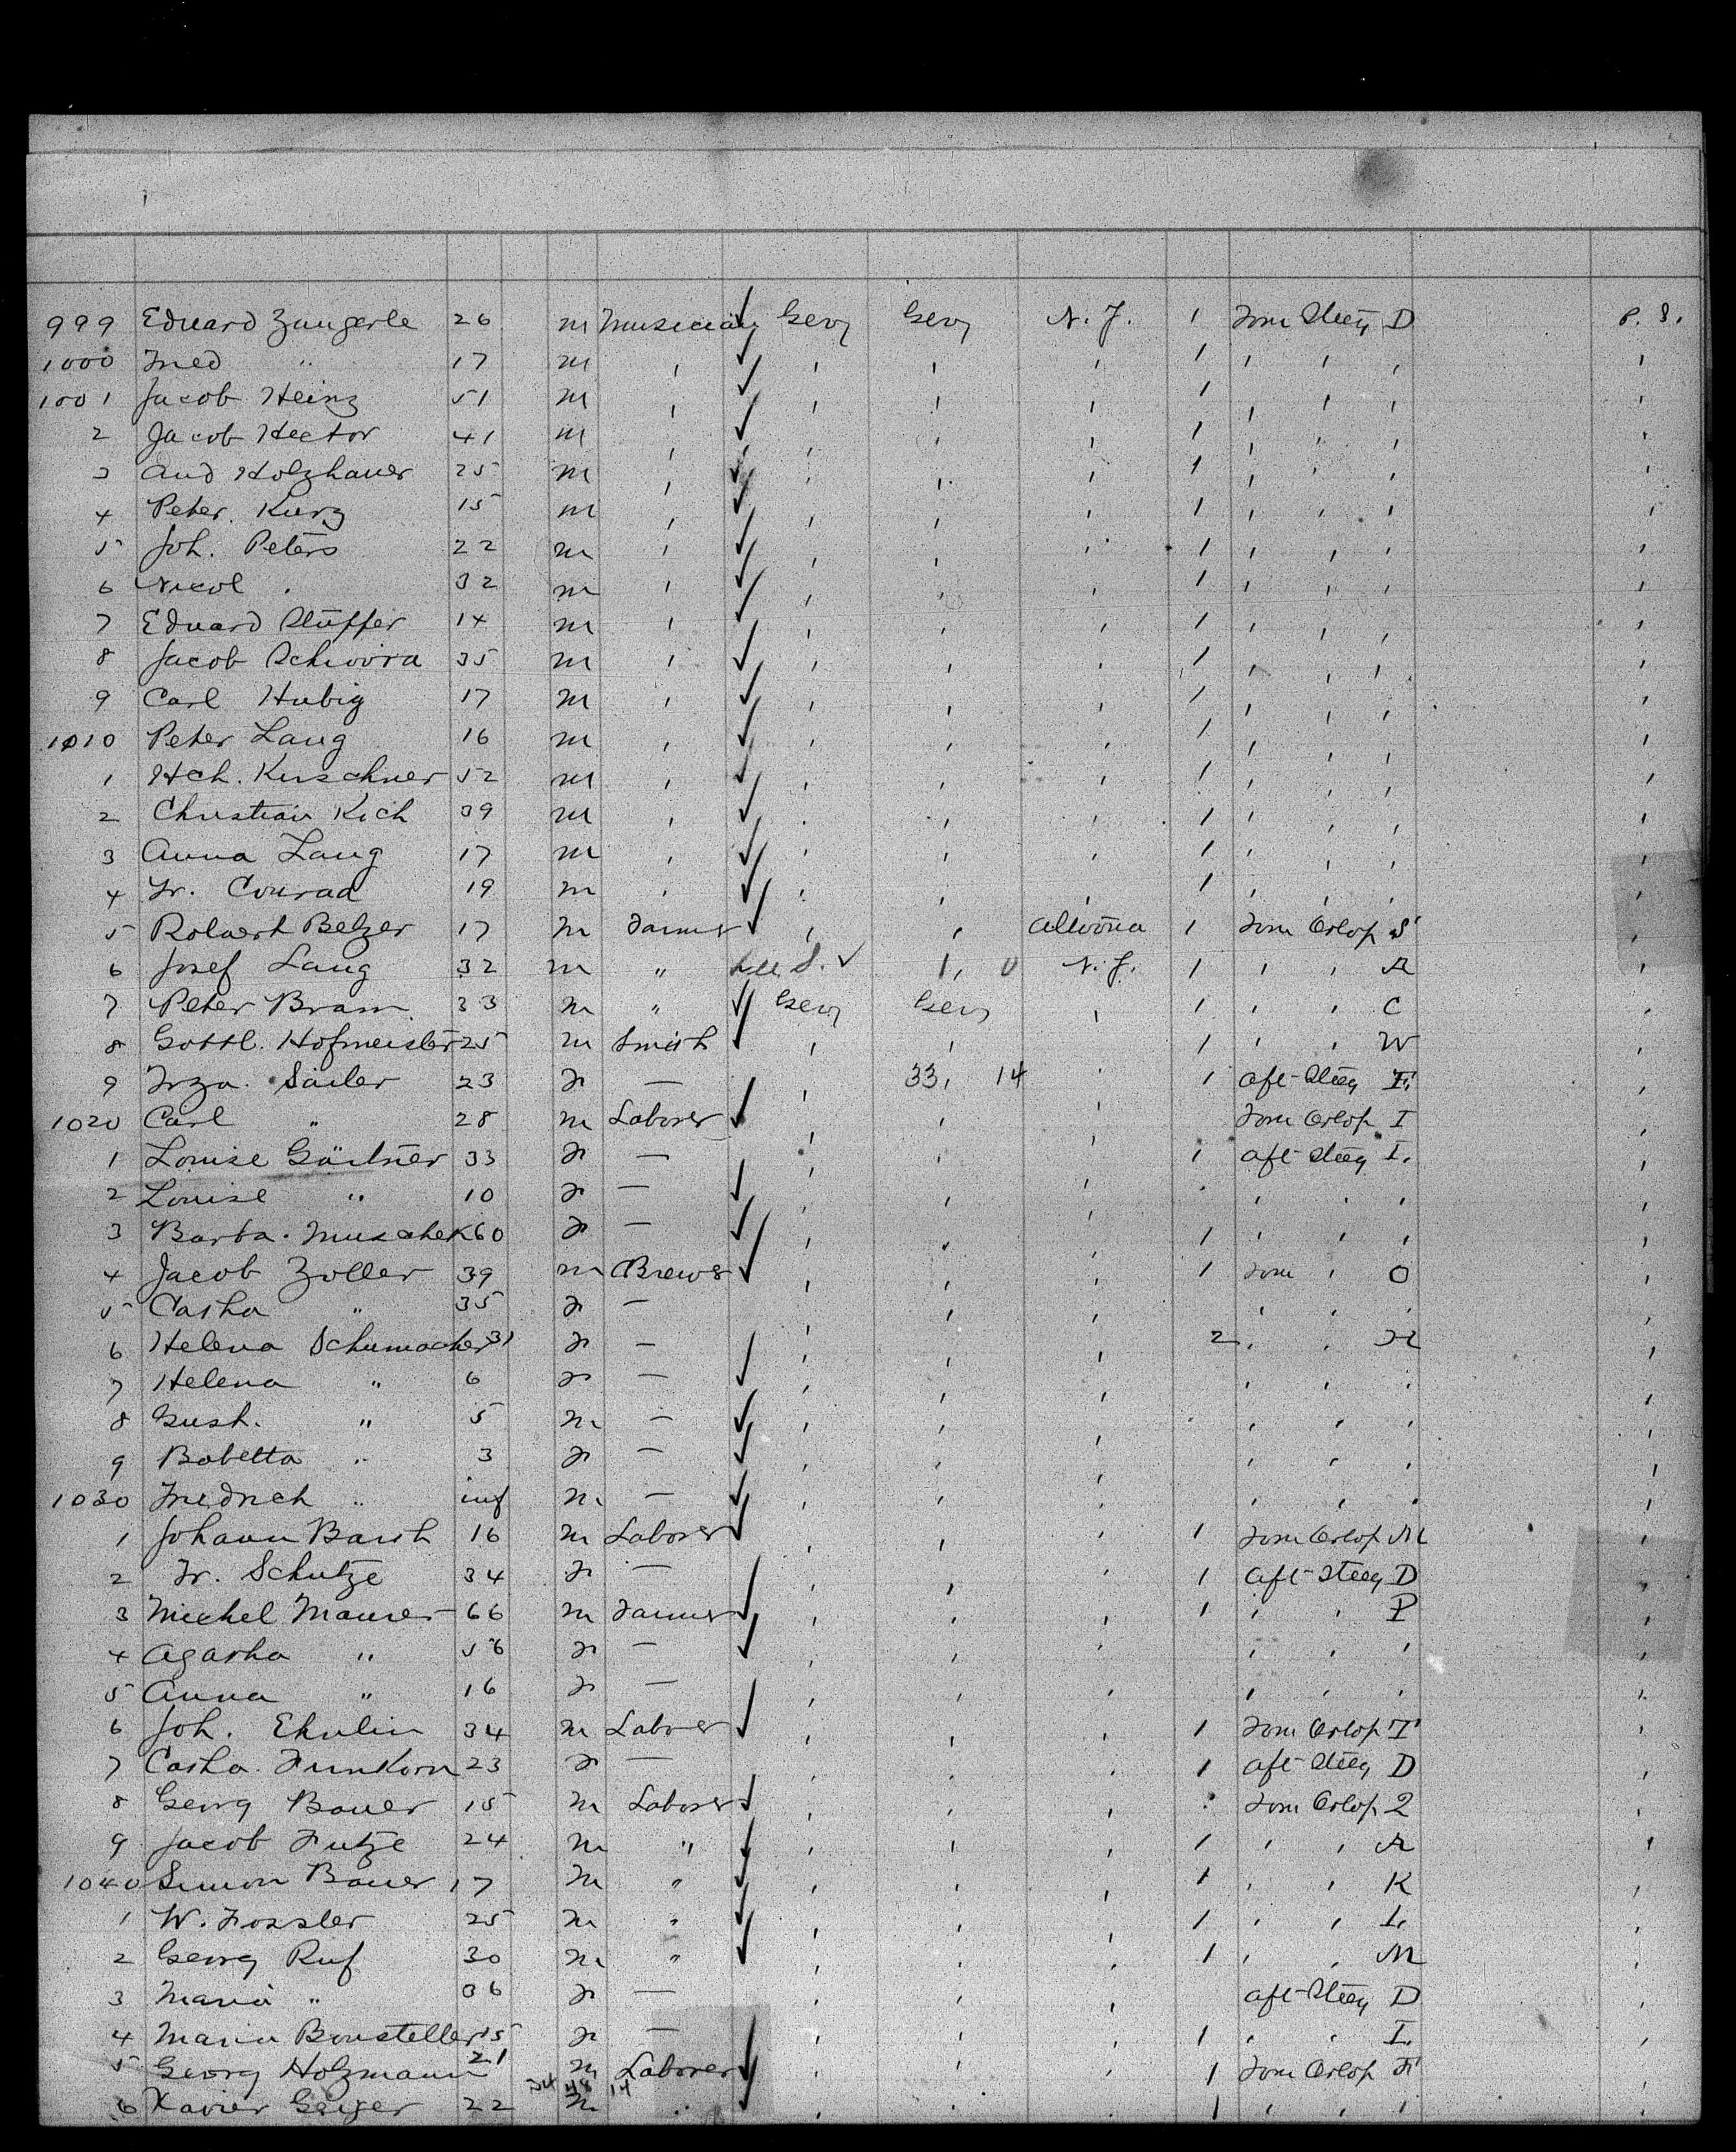 999 Eduard Zangerle 26 m Musician Gery Gery N.Y. 1 Forw Steeg D P. S.
1000 Fried " 17 m ' ' ' ' 1 ' ' ' '
1001 Jacob Heinz 51 m ' ' ' ' 1 ' ' ' '
2 Jacob Hector 41 m ' ' ' ' 1 ' ' ' '
3 And Holzhauer 25 m ' ' ' ' 1 ' ' ' '
4 Peter Kurz 15 m ' ' ' ' 1 ' ' ' '
5 Joh. Peters 22 m ' ' ' ' 1 ' ' ' '
6 Nicol " 32 m ' ' ' ' 1 ' ' ' '
7 Eduard 14 m ' ' ' ' 1 ' ' ' '
8 Jacob 35 m ' ' ' ' 1 ' ' ' '
9 Carl Hubig 17 m ' ' ' ' 1 ' ' ' '
1010 Peter Lang 16 m ' ' ' ' 1 ' ' ' '
1 Hch. Kirschner 52 m ' ' ' ' 1 ' ' ' '
2 Christian Kich 39 m ' ' ' ' 1 ' ' ' '
3 Anna Lang 17 m ' ' ' ' 1 ' ' ' '
4 Fr. Conrad 19 m ' ' ' ' 1 ' ' ' '
5 Robert Belzer 17 m Farmer ' ' Altoona 1 Forw Orlop S '
6 Josef Lang 32 m " U.S. 1, 0 N.Y. 1 ' ' R '
7 Peter Bram 33 m " Gery Gery ' 1 ' ' C '
8 Gottl. Hofmeister 25 m Smith ' ' 1 ' ' W '
9 Frza. Sailer 23 f — ' 33, 14 ' 1 Aft Steeg F '
1020 Carl " 28 m Laborer ' ' ' Forw Orlop I '
1 Louise Gärtner 33 f — ' ' ' 1 Aft Steeg I. '
2 Louise " 10 f — ' ' ' ' ' ' '
3 Barba. 60 f — ' ' ' 1 ' ' ' '
4 Jacob Zoller 39 m Brewer ' ' ' 1 Forw ' O '
5 Catha " 35 f — ' ' ' ' ' ' '
6 Helena Schumacher 31 f — ' ' ' 2 ' ' H '
7 Helena " 6 f — ' ' ' ' ' ' '
8 Gust. " 5 m — ' ' ' ' ' ' '
9 Babetta " 3 f — ' ' ' ' ' ' '
1030 Friedrich " inf m — ' ' ' ' ' ' '
1 Johann Barth 16 m Laborer ' ' ' 1 Forw Orlop M '
2 Fr. Schutze 34 f — ' ' ' 1 Aft Steeg D '
3 Michel Maurer 66 m Farmer ' ' ' 1 ' ' P '
4 Agatha " 56 f — ' ' ' ' ' ' '
5 Anna " 16 f — ' ' ' ' ' ' '
6 Joh. Ehrlin 34 m Laborer ' ' ' 1 Forw Orlop T '
7 Catha. Funkorn 23 f — ' ' ' 1 Aft Steeg D '
8 Georg Bauer 15 m Laborer ' ' ' Forw Orlop 2 '
9 Jacob Futze 24 m " ' ' ' 1 ' ' R '
1040 Simon Bauer 17 m " ' ' ' 1 ' ' K '
1 W. Fossler 25 m " ' ' ' 1 ' ' L '
2 Georg Ruf 30 m " ' ' ' 1 ' ' M '
3 Maria " 36 f — ' ' ' Aft Steeg D '
4 Maria 15 f — ' ' ' 1 ' ' I. '
5 Georg Holzmann 21 m Laborer ' ' ' 1 Forw Orlop F '
6 Xavier Geiger 22 m " ' ' ' 1 ' ' ' '